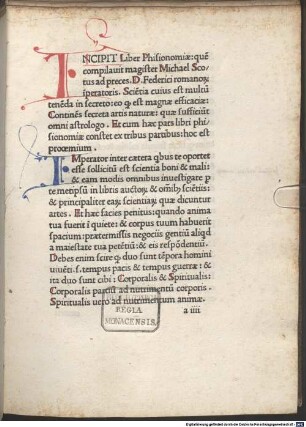 INCIPIT Liber Phisionomiæ: quē
compilauit magister Michael Sco-
tus ad preces D. Federici romanoꝝ
ĩperatoris. Sciẽtia cuius est multū
tenẽda in secreto: eo ꝙ est magnæ efficaciæ:
Continẽs secreta artis naturæ: quæ sufficiūt
omni astrologo. Et cum hæc pars libri phi-
sionomiæ constet ex tribus partibus: hoc est
proœmium.
IMperator inter cætera qbus te oportet
esse sollicitū est scientia boni & mali:
& eam modis omnibus inuestigare p
temetipsū in libris auctoꝝ & oīnibꝫ scẽtiis:
& principaliter eaꝝ scientiaꝝ quæ dicuntur
artes. Et hæc facies penitus: quando anima
tua fuerit ĩ quiete: & corpus tuum habuerit
spacium: prætermissis negociis gentiū aliqd
a maiestate tua petẽtiū: & eis respōdẽtiū.
Debes enim scire ꝙ duo sunt tẽpora homini
uiuẽti. s. tempus pacis & tempus guerræ: &
ita duo sunt cibi: Corporalis & Spiritualis:
Corporalis ad nutrimẽtū corporis.
Spiritualis uero ad nutrimentum animæ.
a iiii
REGIA
MONACENSIS.